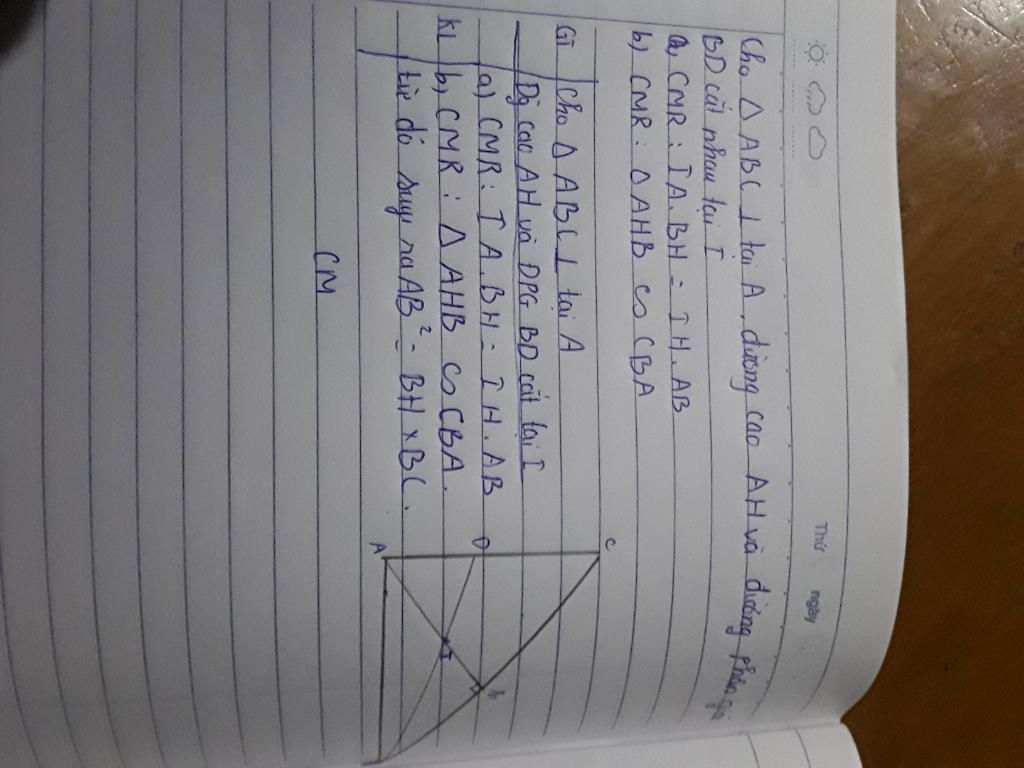 Thứ ngày
Cho Δ ABC ⊥ tại A, đường cao AH và đường phân giác
BD cắt nhau tại I
a) CMR : IA.BH = IH.AB
b) CMR : Δ AHB ∽ CBA
GT Cho Δ ABC ⊥ tại A
Đg cao AH và DPG BD cắt tại I
a) CMR : IA.BH = IH.AB
KL b) CMR : Δ AHB ∽ CBA.
từ đó suy ra AB² = BH × BC.
CM
C
D
A
I
h